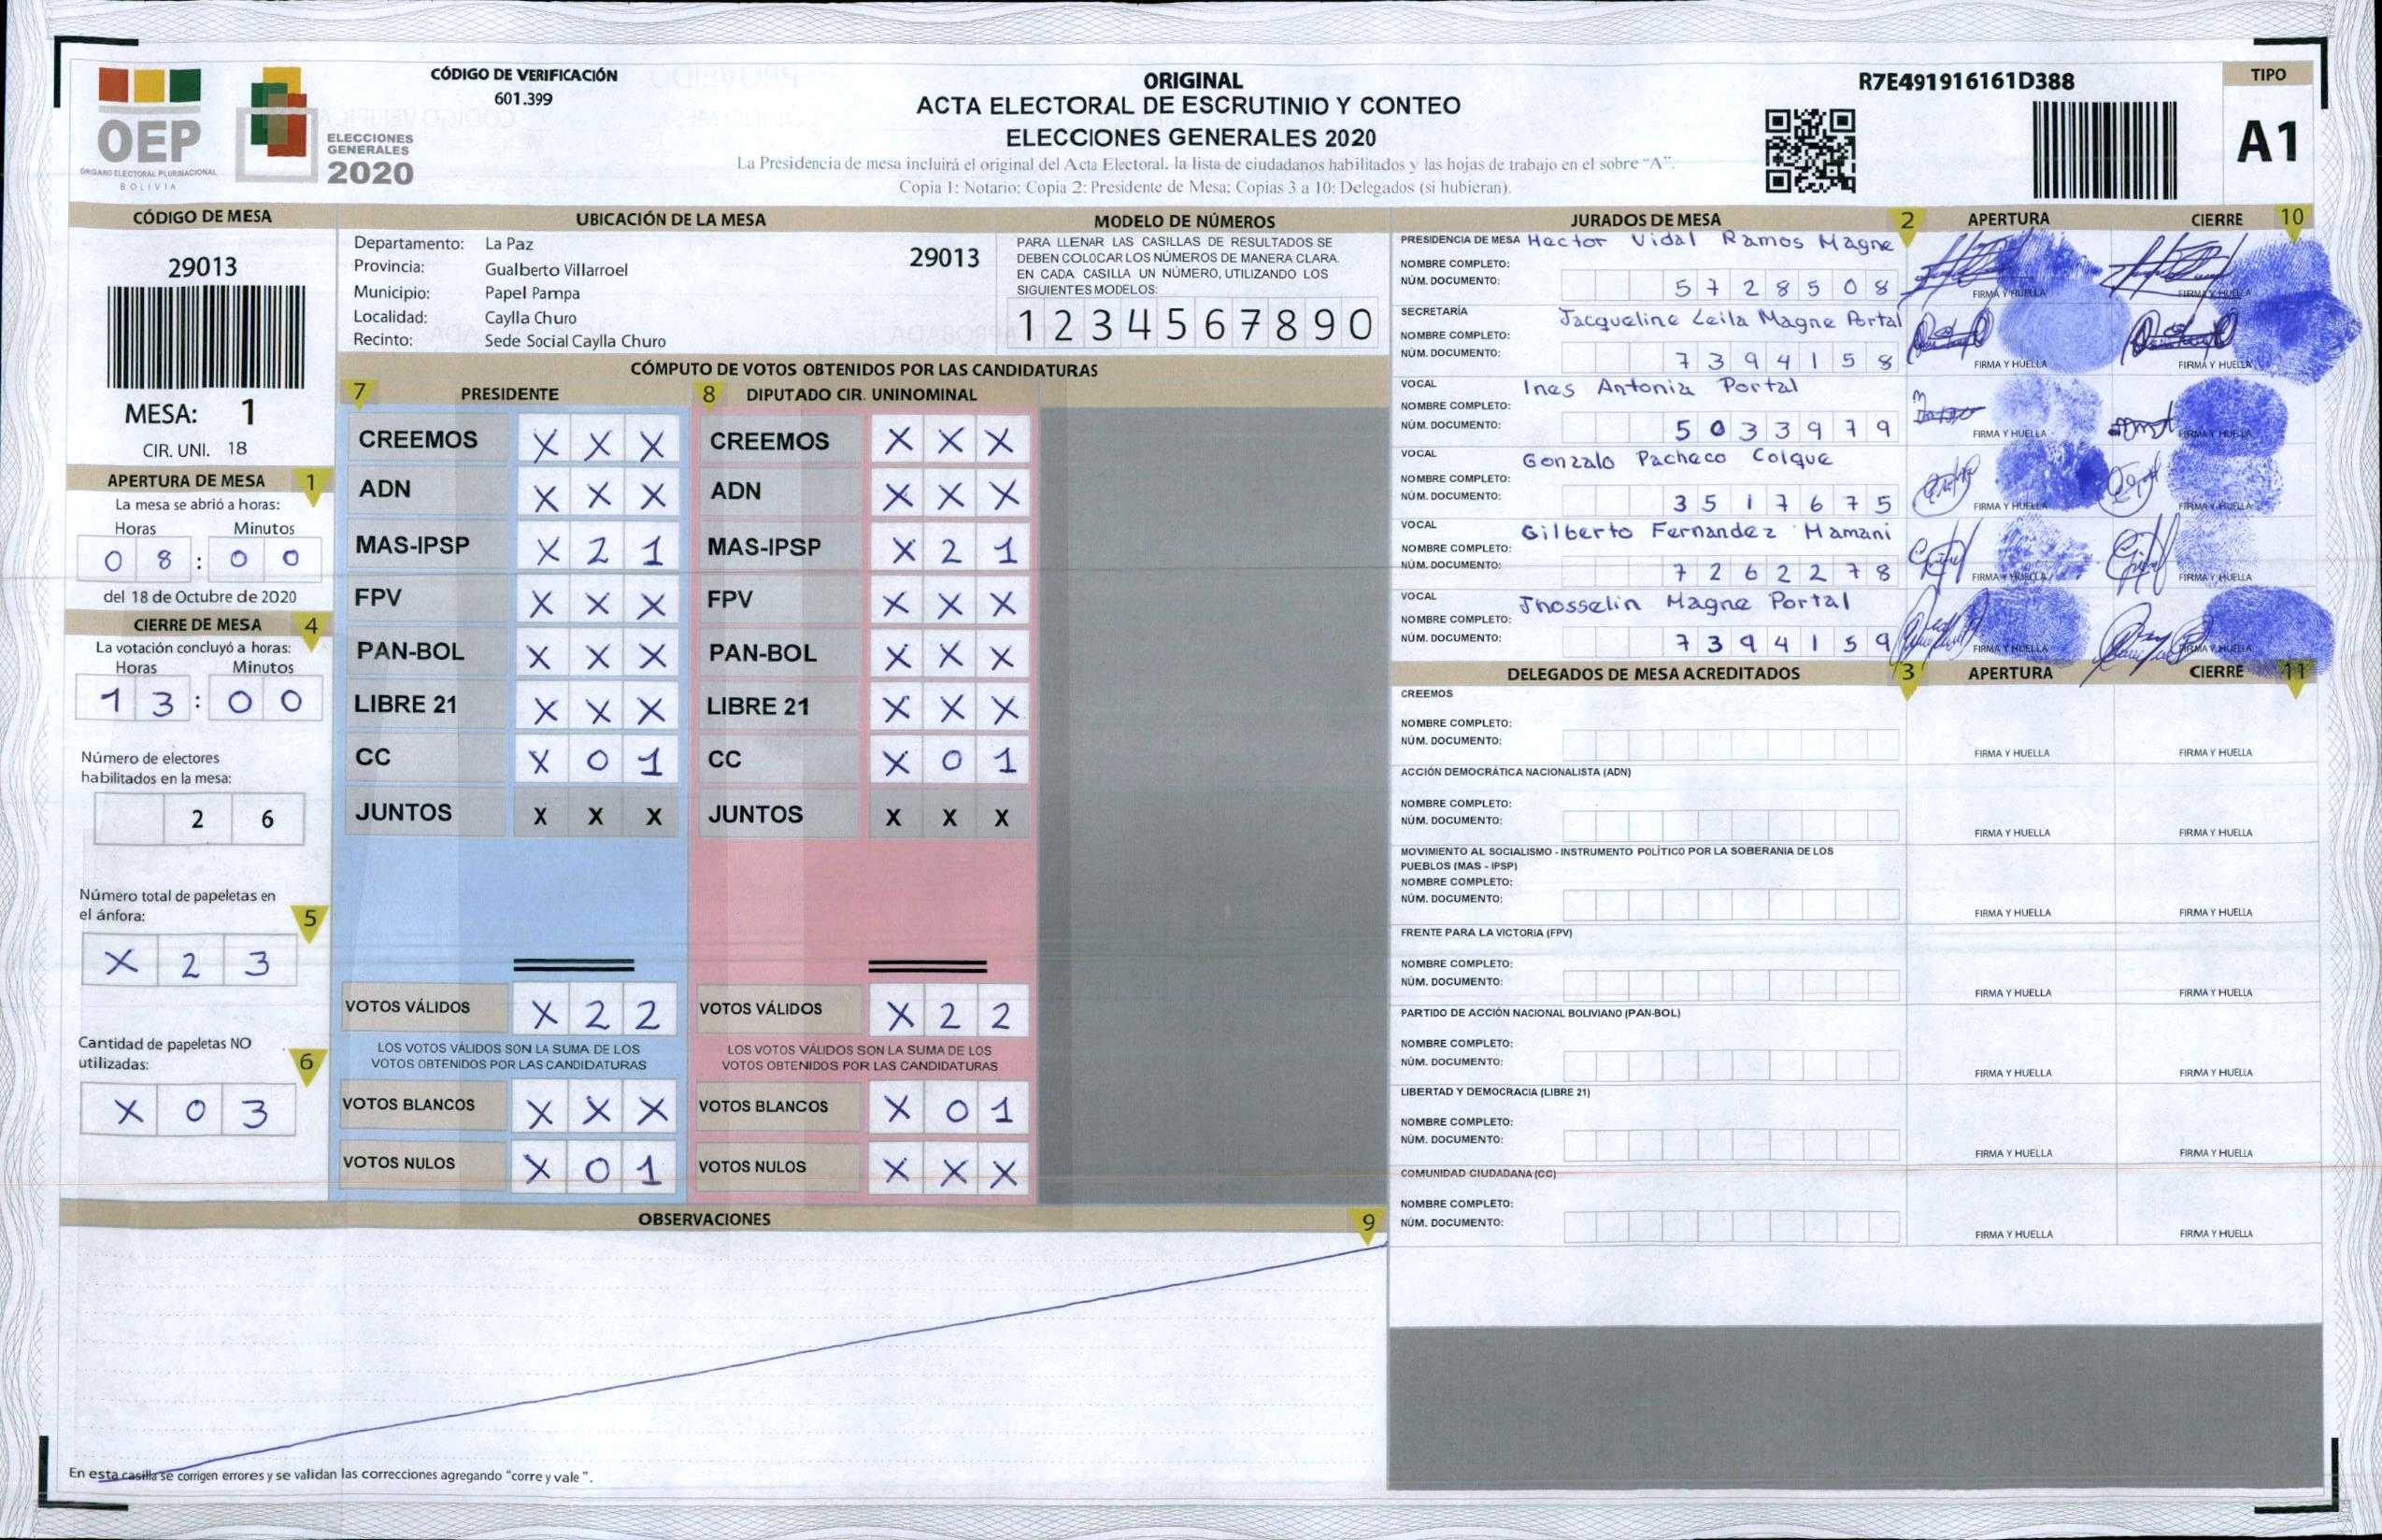 OEP
ÓRGANO ELECTORAL PLURINACIONAL
BOLIVIA
ELECCIONES
GENERALES
2020
CÓDIGO DE VERIFICACIÓN
601.399
ORIGINAL
ACTA ELECTORAL DE ESCRUTINIO Y CONTEO
ELECCIONES GENERALES 2020
La Presidencia de mesa incluirá el original del Acta Electoral, la lista de ciudadanos habilitados y las hojas de trabajo en el sobre "A".
Copia 1: Notario; Copia 2: Presidente de Mesa; Copias 3 a 10: Delegados (si hubieran).
R7E491916161D388
TIPO
A1
CÓDIGO DE MESA
29013
MESA: 1
CIR. UNI. 18
APERTURA DE MESA 1
La mesa se abrió a horas:
Horas Minutos
0 8 : 0 0
del 18 de Octubre de 2020
CIERRE DE MESA 4
La votación concluyó a horas:
Horas Minutos
1 3 : 0 0
Número de electores
habilitados en la mesa:
2 6
Número total de papeletas en
el ánfora: 5
X 2 3
Cantidad de papeletas NO
utilizadas: 6
X 0 3
UBICACIÓN DE LA MESA
Departamento: La Paz 29013
Provincia: Gualberto Villarroel
Municipio: Papel Pampa
Localidad: Caylla Churo
Recinto: Sede Social Caylla Churo
MODELO DE NÚMEROS
PARA LLENAR LAS CASILLAS DE RESULTADOS SE
DEBEN COLOCAR LOS NÚMEROS DE MANERA CLARA.
EN CADA CASILLA UN NÚMERO, UTILIZANDO LOS
SIGUIENTES MODELOS:
1 2 3 4 5 6 7 8 9 0
CÓMPUTO DE VOTOS OBTENIDOS POR LAS CANDIDATURAS
7 PRESIDENTE 8 DIPUTADO CIR. UNINOMINAL
CREEMOS X X X CREEMOS X X X
ADN X X X ADN X X X
MAS-IPSP X 2 1 MAS-IPSP X 2 1
FPV X X X FPV X X X
PAN-BOL X X X PAN-BOL X X X
LIBRE 21 X X X LIBRE 21 X X X
CC X 0 1 CC X 0 1
JUNTOS X X X JUNTOS X X X
VOTOS VÁLIDOS X 2 2 VOTOS VÁLIDOS X 2 2
LOS VOTOS VÁLIDOS SON LA SUMA DE LOS LOS VOTOS VÁLIDOS SON LA SUMA DE LOS
VOTOS OBTENIDOS POR LAS CANDIDATURAS VOTOS OBTENIDOS POR LAS CANDIDATURAS
VOTOS BLANCOS X X X VOTOS BLANCOS X 0 1
VOTOS NULOS X 0 1 VOTOS NULOS X X X
OBSERVACIONES 9
En esta casilla se corrigen errores y se validan las correcciones agregando "corre y vale".
JURADOS DE MESA 2 APERTURA CIERRE 10
PRESIDENCIA DE MESA Hector Vidal Ramos Magne
NOMBRE COMPLETO:
NÚM. DOCUMENTO: 5 7 2 8 5 0 8 FIRMA Y HUELLA FIRMA Y HUELLA
SECRETARÍA Jacqueline Leila Magne Portal
NOMBRE COMPLETO:
NÚM. DOCUMENTO: 7 3 9 4 1 5 8 FIRMA Y HUELLA FIRMA Y HUELLA
VOCAL Ines Antonia Portal
NOMBRE COMPLETO:
NÚM. DOCUMENTO: 5 0 3 3 9 7 9 FIRMA Y HUELLA FIRMA Y HUELLA
VOCAL Gonzalo Pacheco Colque
NOMBRE COMPLETO:
NÚM. DOCUMENTO: 3 5 1 7 6 7 5 FIRMA Y HUELLA FIRMA Y HUELLA
VOCAL Gilberto Fernandez Mamani
NOMBRE COMPLETO:
NÚM. DOCUMENTO: 7 2 6 2 2 7 8 FIRMA Y HUELLA FIRMA Y HUELLA
VOCAL Jhosselin Magne Portal
NOMBRE COMPLETO:
NÚM. DOCUMENTO: 7 3 9 4 1 5 9 FIRMA Y HUELLA FIRMA Y HUELLA
DELEGADOS DE MESA ACREDITADOS 3 APERTURA CIERRE 11
CREEMOS
NOMBRE COMPLETO:
NÚM. DOCUMENTO: FIRMA Y HUELLA FIRMA Y HUELLA
ACCIÓN DEMOCRÁTICA NACIONALISTA (ADN)
NOMBRE COMPLETO:
NÚM. DOCUMENTO: FIRMA Y HUELLA FIRMA Y HUELLA
MOVIMIENTO AL SOCIALISMO - INSTRUMENTO POLÍTICO POR LA SOBERANIA DE LOS
PUEBLOS (MAS - IPSP)
NOMBRE COMPLETO:
NÚM. DOCUMENTO: FIRMA Y HUELLA FIRMA Y HUELLA
FRENTE PARA LA VICTORIA (FPV)
NOMBRE COMPLETO:
NÚM. DOCUMENTO: FIRMA Y HUELLA FIRMA Y HUELLA
PARTIDO DE ACCIÓN NACIONAL BOLIVIANO (PAN-BOL)
NOMBRE COMPLETO:
NÚM. DOCUMENTO: FIRMA Y HUELLA FIRMA Y HUELLA
LIBERTAD Y DEMOCRACIA (LIBRE 21)
NOMBRE COMPLETO:
NÚM. DOCUMENTO: FIRMA Y HUELLA FIRMA Y HUELLA
COMUNIDAD CIUDADANA (CC)
NOMBRE COMPLETO:
NÚM. DOCUMENTO: FIRMA Y HUELLA FIRMA Y HUELLA